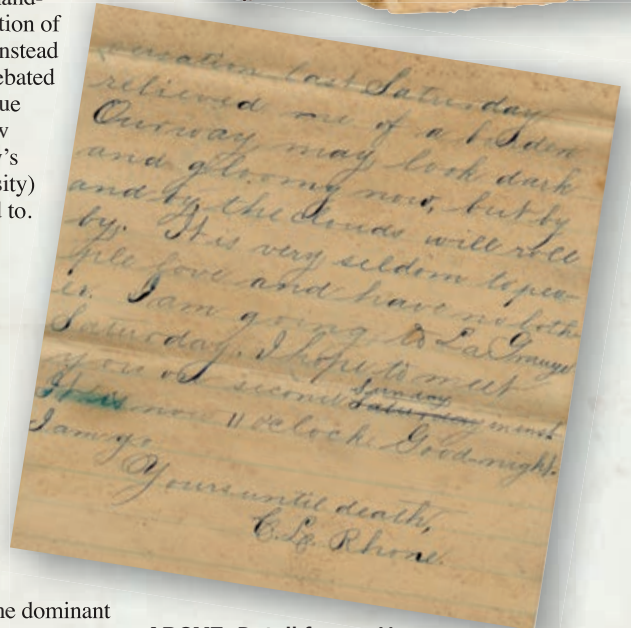 tion of
nstead
ebated
ue
w
y's
sity)
d to.
last Saturday
relieved me of a burden
Our way may look dark
and gloomy now, but by
and by the clouds will roll
by. It is very seldom to peo-
ple love and have no both
er. I am going to La Grange
Saturday. I hope to meet
you on second Sunday Saturday in inst.
It is now 11 oclock. Good-night.
I am go
Yours until death,
C. L. Rhone.
ne dominant